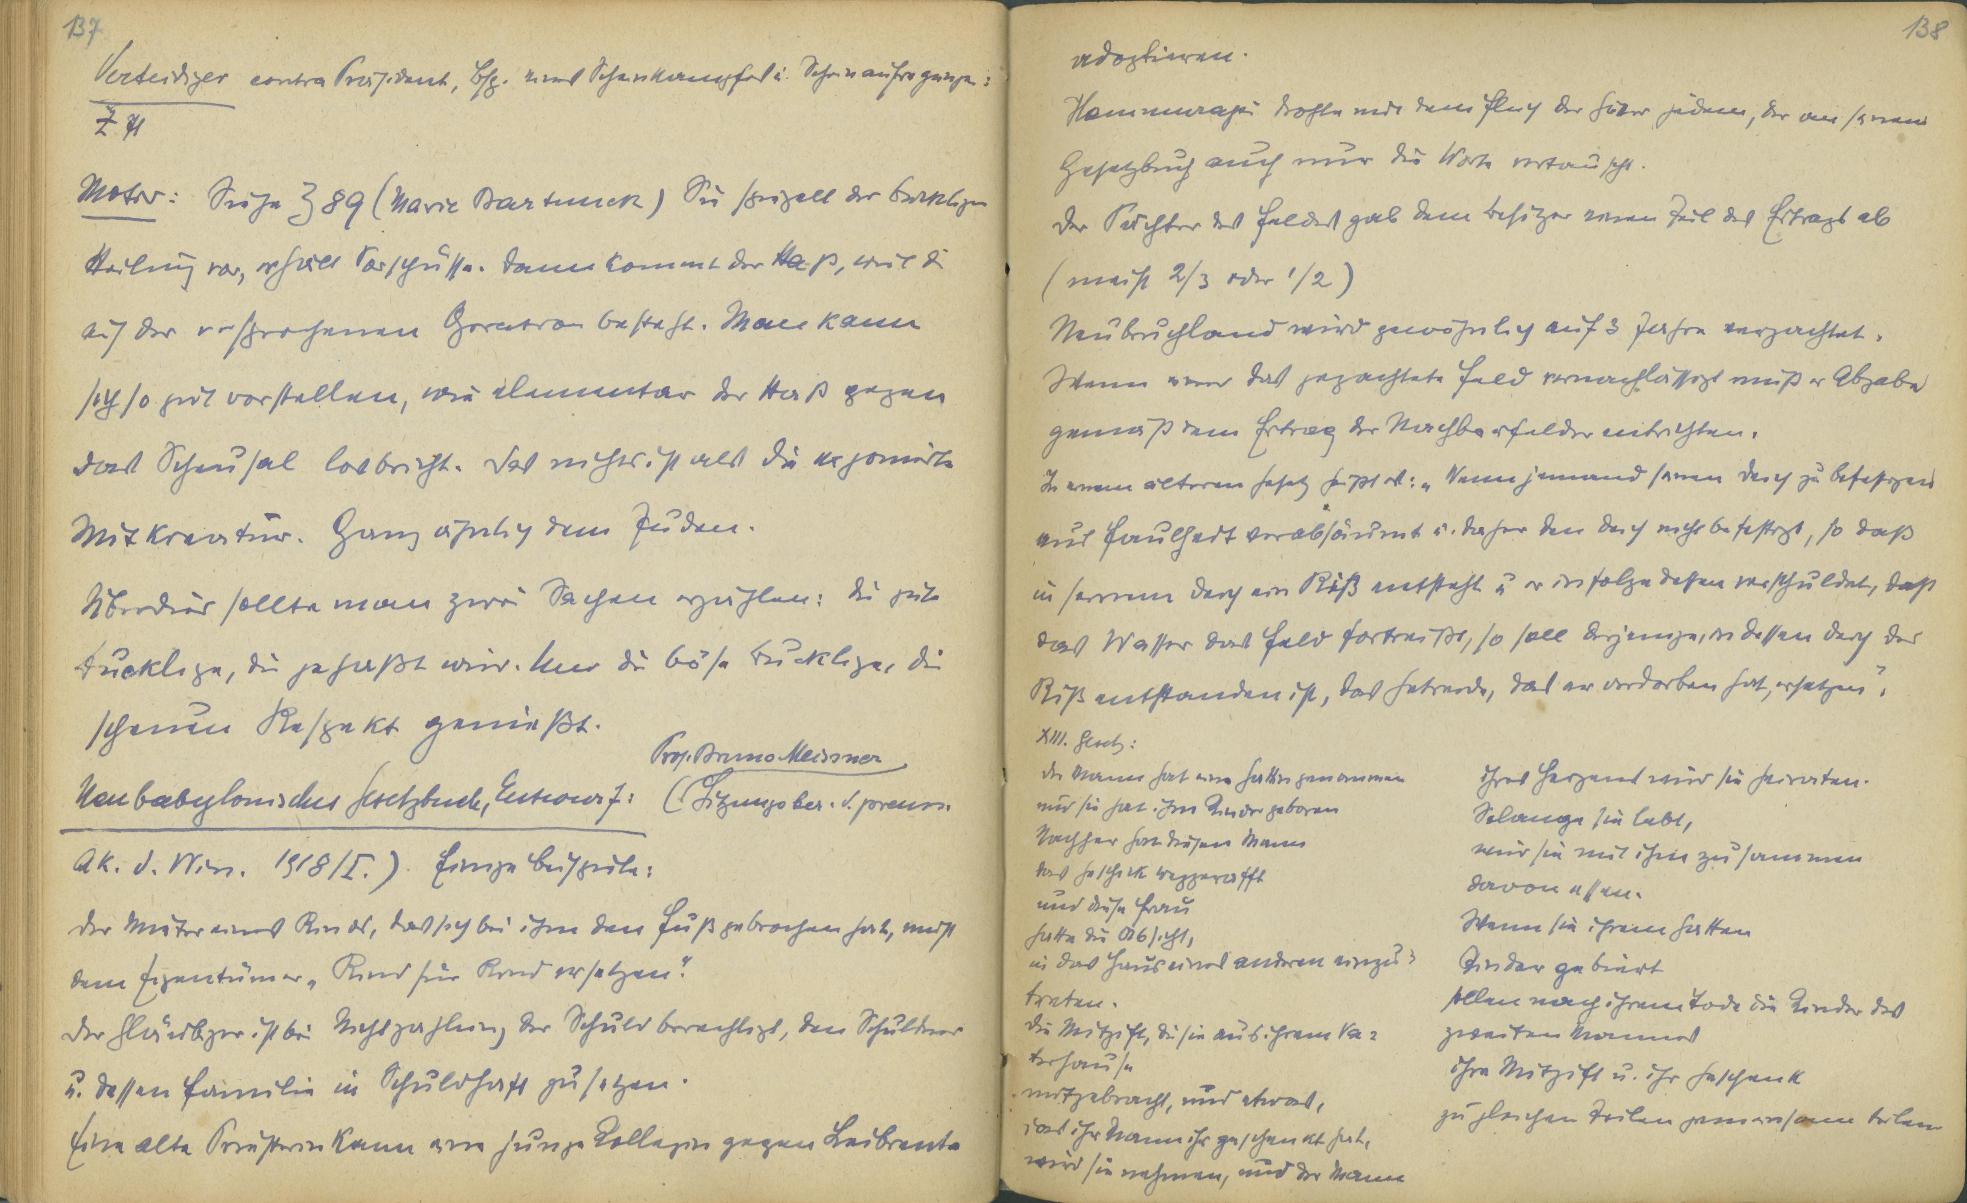 137
Verteidiger contra Präsident, Bsp. eines Scheinkampfes u. Scheinaufregungen:
Z 71
Motiv: Siehe Z 89 (Marie Bartunek) Sie spiegelt der Buckligen
Heilung vor, erhält Vorschüsse. Dann kommt der Haß, weil die
auf der versprochenen besteht. Man kann
sich so gut vorstellen, wie elementar der Haß gegen
das Scheusal losbricht. Das nichts ist als die
Mitkreatur. Ganz ähnlich dem Juden.
Überdies sollte man zwei Sachen erzählen: die gute
Bucklige, die gehaßt wird. Und die böse Bucklige, die
scheuen Respekt genießt.
Prof. Bruno Meissner
Neubabylonisches Gesetzbuch, Entwurf: (Sitzungsber. d. preuss.
Ak. d. Wiss. 1918/I.) Einige Beispiele:
Der Mieter eines Rindes, das sich bei ihm den Fuß gebrochen hat, muß
dem Eigentümer „Rind für Rind ersetzen".
Der Gläubiger ist bei Nichtzahlung der Schuld berechtigt, den Schuldner
u. dessen Familie in Schuldhaft zu setzen.
Eine alte Priesterin kann eine junge Kollegin gegen Leibrente
138
adoptieren.
Hammurapi drohte mit dem Fluch der Götter jedem, der an seinem
Gesetzbuch auch nur die Worte vertauscht.
Der Pächter des Feldes gab dem Besitzer einen Teil des Ertrags ab
(meist 2/3 oder 1/2)
Neubruchland wird gewöhnlich auf 3 Jahre verpachtet.
Wenn einer das gepachtete Feld vernachlässigt muß er Abgabe
gemäß dem Ertrag der Nachbarfelder entrichten.
In einem älteren Gesetz heißt es: „Wenn jemand seinen Deich zu befestigen
aus Faulheit verabsäumt u. daher den Deich nicht befestigt, so daß
in seinem Deich ein Riß entsteht u er infolgedessen verschuldet, daß
das Wasser das Feld fortreißt, so soll derjenige, in dessen Deich der
Riß entstanden ist, das Getreide, das er verdorben hat, ersetzen".
XIII. Gesetz:
Der Mann hat eine Gattin genommen
und sie hat ihm Kinder geboren
Nachher hat diesen Mann
das Geschick weggerafft
und diese Frau
hatte die Absicht,
in das Haus eines anderen einzu=
treten.
Die Mitgift, die sie aus ihrem Va=
terhause
mitgebracht, und etwas,
das ihr Mann ihr geschenkt hat,
wird sie nehmen, und der Mann
ihres Herzens wird sie heiraten.
Solange sie lebt,
wird sie mit ihm zusammen
davon essen.
Wenn sie ihrem Gatten
Kinder gebiert
sollen nach ihrem Tode die Kinder des
zweiten Mannes
ihre Mitgift u. ihr Geschenk
zu gleichen Teilen gemeinsam teilen